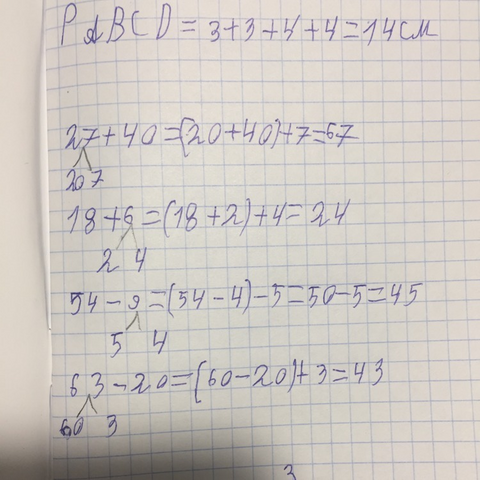 P ABCD = 3+3+4+4=14см
27+40=(20+40)+7=67
20 7
18+6=(18+2)+4=24
2 4
54-9=(54-4)-5=50-5=45
5 4
63-20=(60-20)+3=43
60 3
3